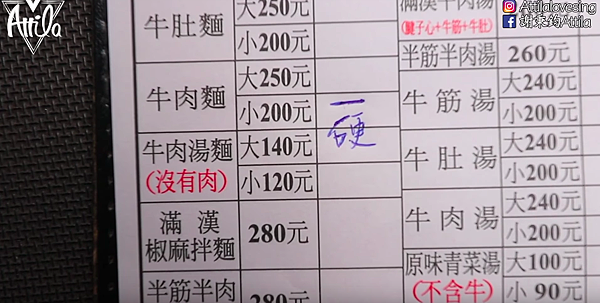 Attila
Attilalovesing
謝來鈞Attila
牛肚麵 大250元
小200元
牛肉麵 大250元
小200元 一硬
牛肉湯麵 大140元
(沒有肉) 小120元
滿漢
椒麻拌麵 280元
半筋半肉 280元
滿漢牛肉湯
(腱子心+牛筋+牛肚)
半筋半肉湯 260元
牛筋湯 大240元
小200元
牛肚湯 大240元
小200元
牛肉湯 大240元
小200元
原味青菜湯 大100元
(不含牛) 小 90元